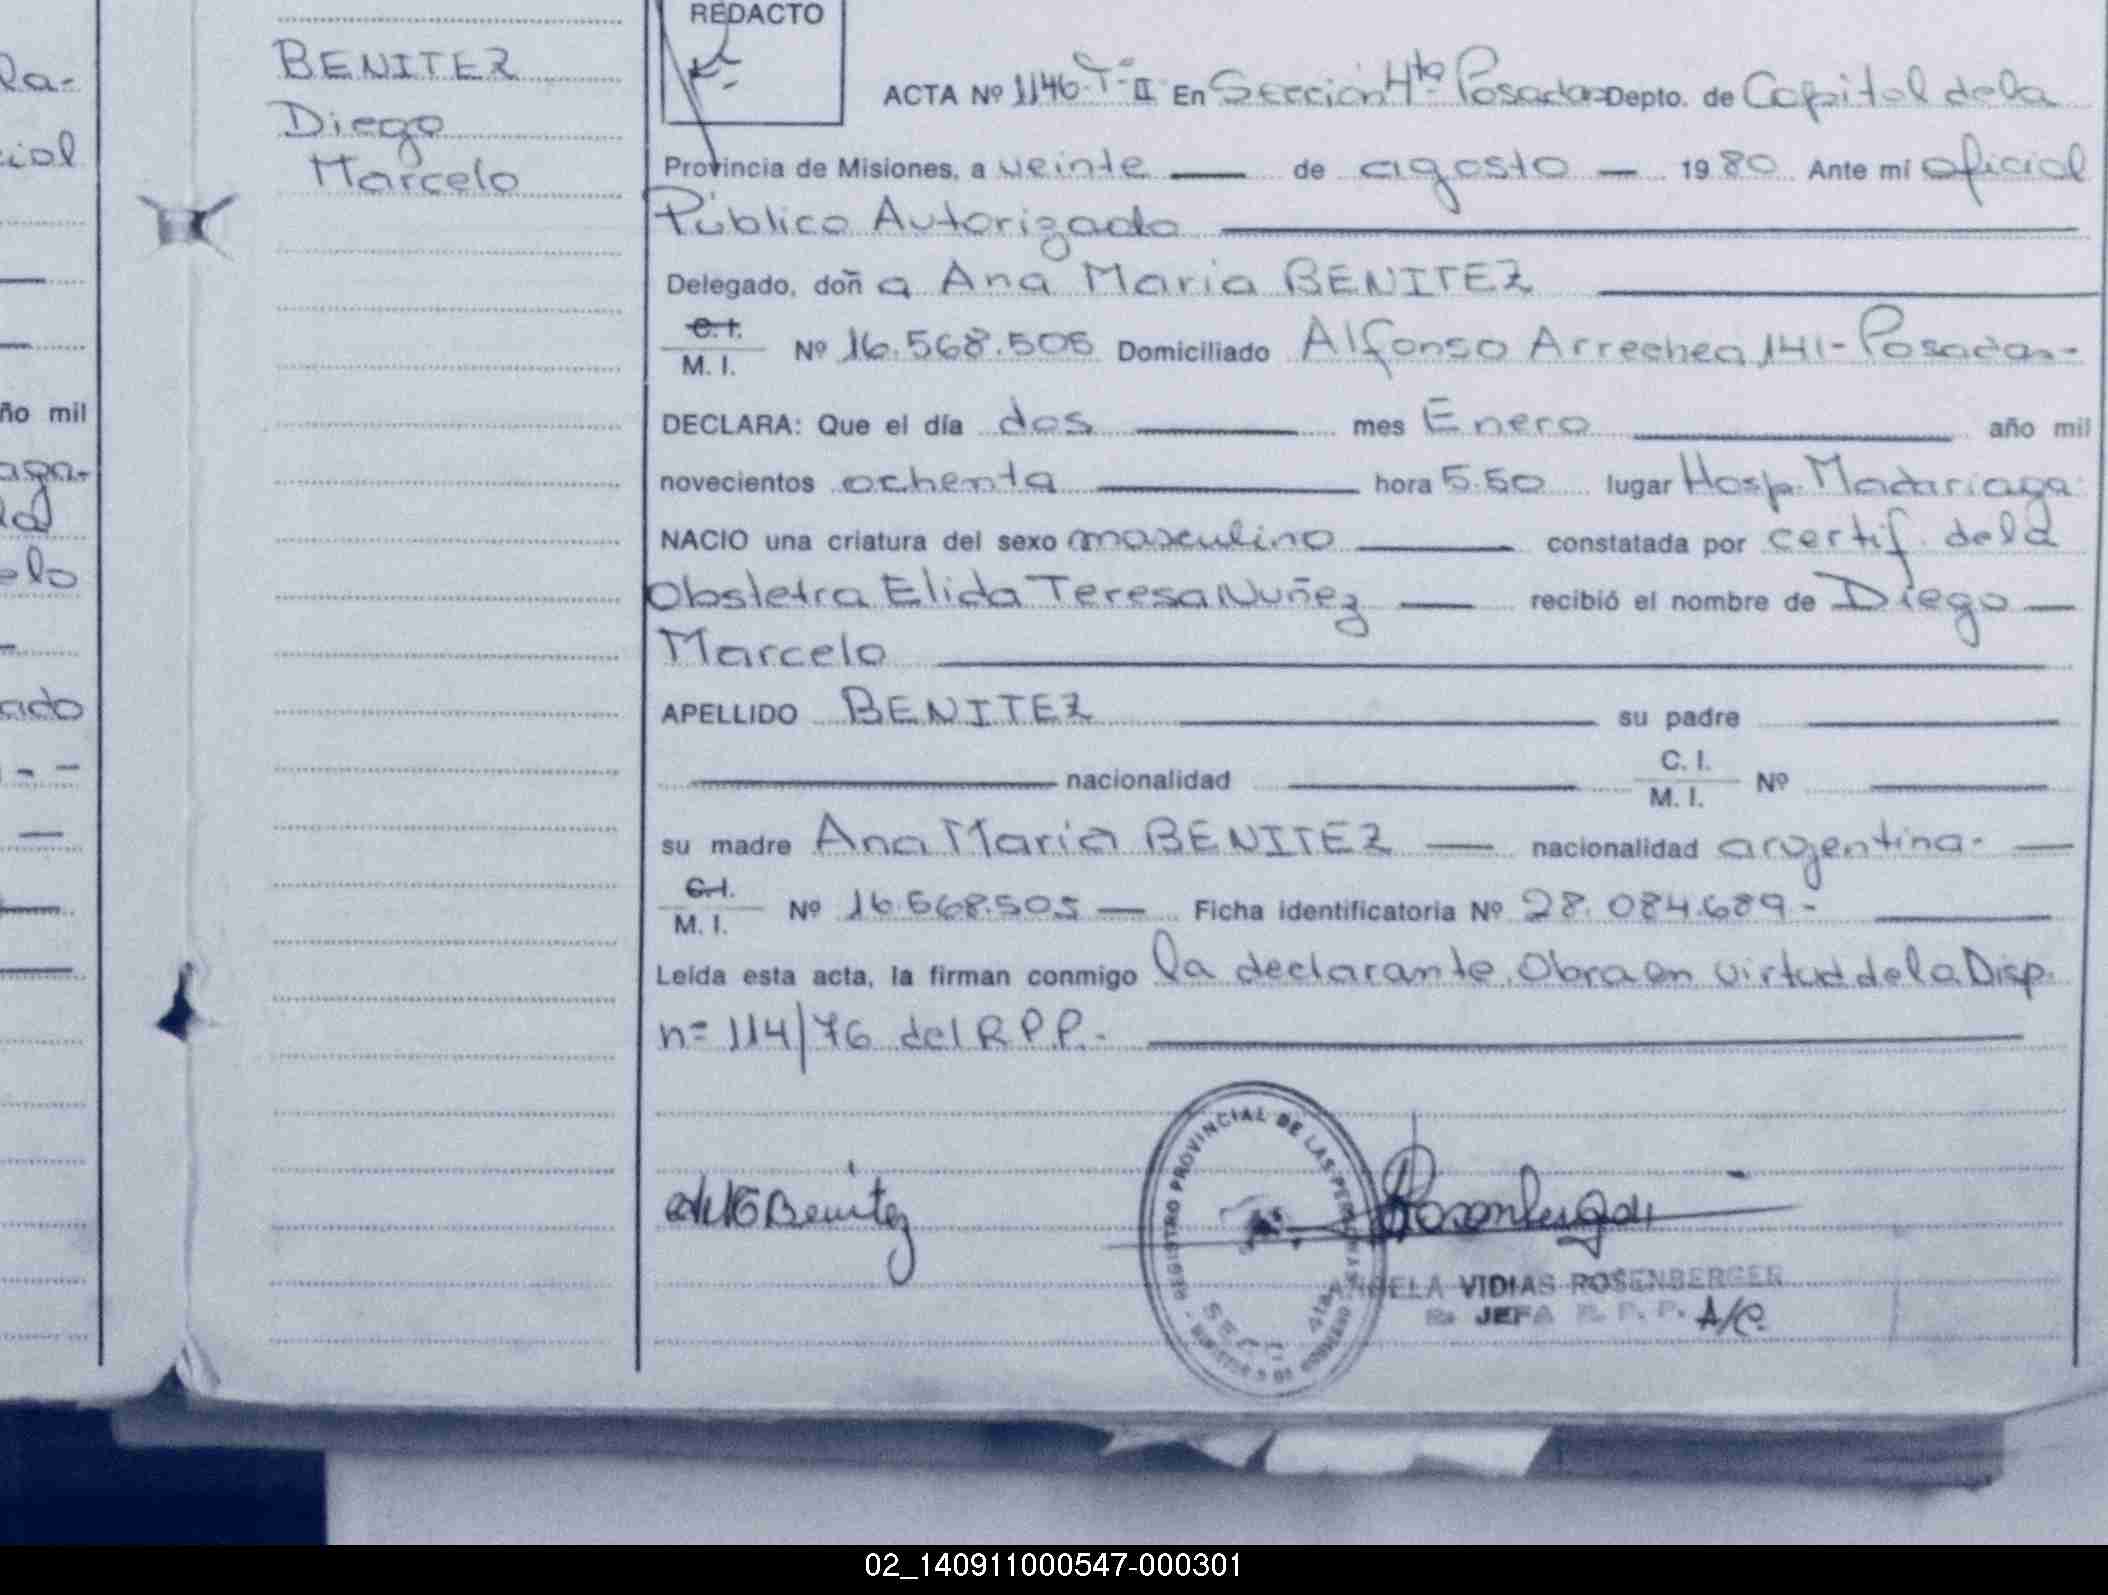 la-
cial
ño mil
aga-
la
elo
ado
BENITEZ
Diego
Marcelo
REDACTO
ACTA Nº 1146 Tº II En Sección 4ta Posadas Depto. de Capital de la
Provincia de Misiones, a veinte — de agosto — 1980 Ante mi oficial
Público Autorizado —
Delegado, doña Ana Maria BENITEZ —
C. I.
M. I. Nº 16.568.505 Domiciliado Alfonso Arrechea 141 - Posadas -
DECLARA: Que el día dos — mes Enero — año mil
novecientos ochenta — hora 5.50 lugar Hosp. Madariaga
NACIO una criatura del sexo masculino — constatada por certif. de la
Obstetra Elida Teresa Nuñez — recibió el nombre de Diego —
Marcelo —
APELLIDO BENITEZ — su padre —
— nacionalidad — C. I.
M. I. Nº —
su madre Ana Maria BENITEZ — nacionalidad argentina - —
C. I.
M. I. Nº 16.568.505 — Ficha identificatoria Nº 28.084.689 - —
Leída esta acta, la firman conmigo la declarante. Obra en virtud de la Disp.
nº 114/76 del R.P.P. - —
Benitez
REGISTRO PROVINCIAL DE LAS PERSONAS
ANGELA VIDIAS ROSENBERGER
JEFA R. P. P. A/C.
02_140911000547-000301